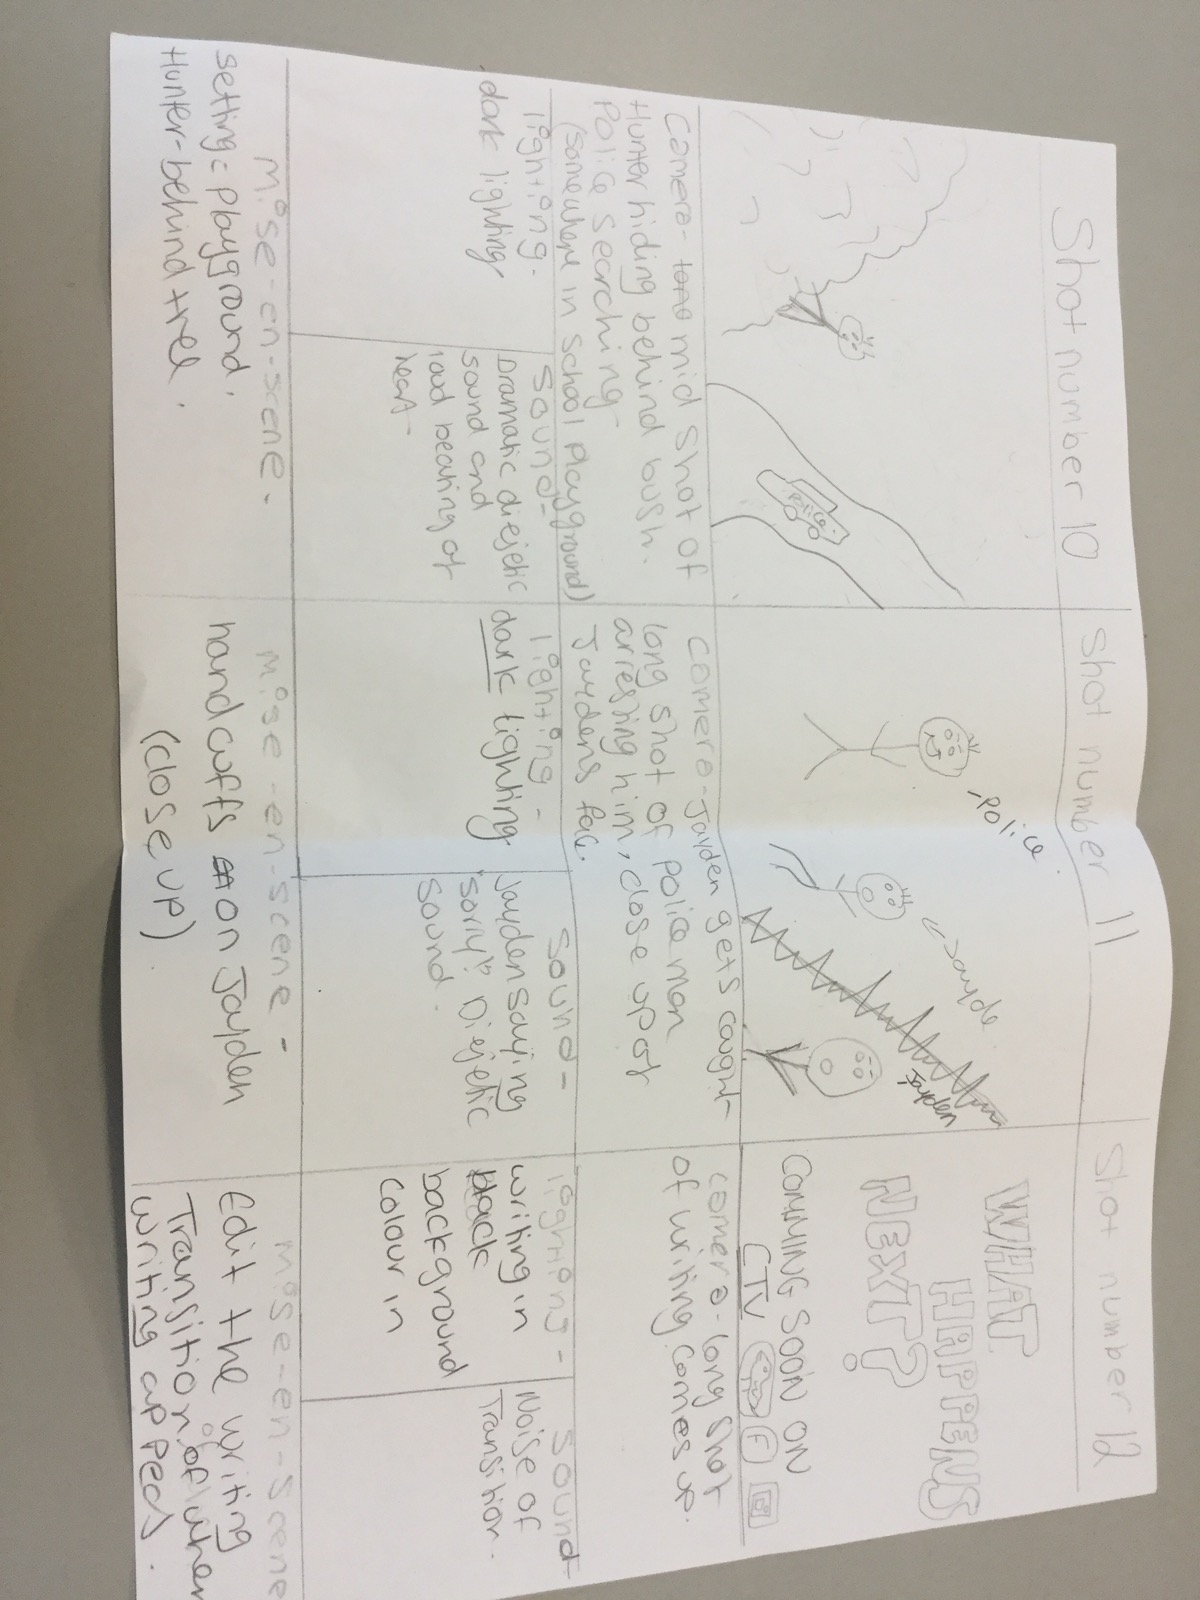 Shot number 10
Police
Camera- mid shot of
Hunter hiding behind bush.
Police searching
(somewhere in school playground)
lighting-
dark lighting
Sound-
Dramatic diejetic
sound and
loud beating of
heart-
mise-en-scene.
setting= playground.
Hunter-behind tree.
Shot number 11
-Police
Jayden
Camera-Jayden gets caught-
long shot of police man
arresting him, close up of
Jaydens face.
lighting-
dark lighting
Sound-
Jayden saying
"sorry". Diejetic
sound.
mise-en-scene-
handcuffs on Jayden
(close up)
Shot number 12
WHAT
HAPPENS
NEXT?
COMMING SOON ON
CTV
F
camera-long shot
of writing comes up.
lighting-
writing in
black
background
colour in
Sound-
Noise of
Transition.
mise-en-scene
Edit the writing
Transition of when
writing appears.